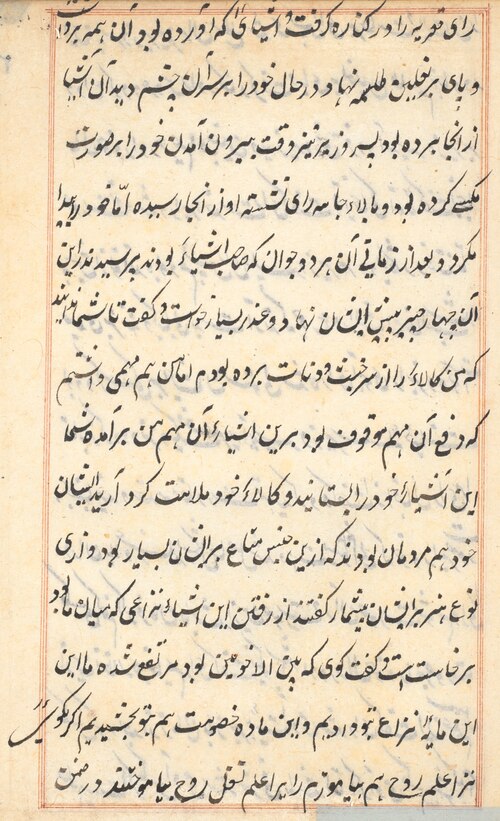 رای را در کناره گرفت و اشیای که آورده بود آن همه
و پای بر نعلین نهاد و در حال خود را بر سر آن چشمه دید آن اشیا
از انجا برده بود پسر وزیر نیز وقت بیرون آمدن خود را بر صورت
مکسی کرده بود و بالاء جامه رای نشسته او از انجا رسیده اما خود را پیدا
نکرد و بعد از زمانی آن هر دو جوان که صاحب اشیاء بودند پرسیدند این
آن چهار چیز پیش ایشان نهاد و عذر بسیار خواست و گفت تا شما بدانید
که من کالاء را از سر خبث و دنات برده بودم اما من هم مهمی داشتم
که دفع آن مهم موقوف بود برین اشیاء آن مهم من برآمده شما
این اشیاء خود را بستانید و کالاء خود ملامت کرد آرید ایشان
خود هم مردمان بودند که ازین جنس متاع بر ایشان بسیار بود و ازی
نوع هنر بر ایشان بیشمار گفتند از رفتن این اشیاء نزاعی که میان ما بود
برخاست است و گفت کوی که بین الاخوین بود مرتفع شده ما این
این مایهٔ نزاع بتو دادیم و این ماده خصومت هم بتو بخشیدیم اگر بگوئی
ترا علم روح هم بیاموزم را برا علم نقل روح بیاموختند در ضمن